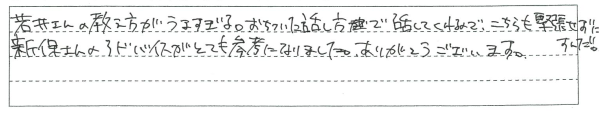 若井さんの教え方がうますぎる。おちついた話し方で話してくれるので、こちらも緊張せずに
すんだ。
新保さんのアドバイスがとても参考になりました。ありがとうございます。